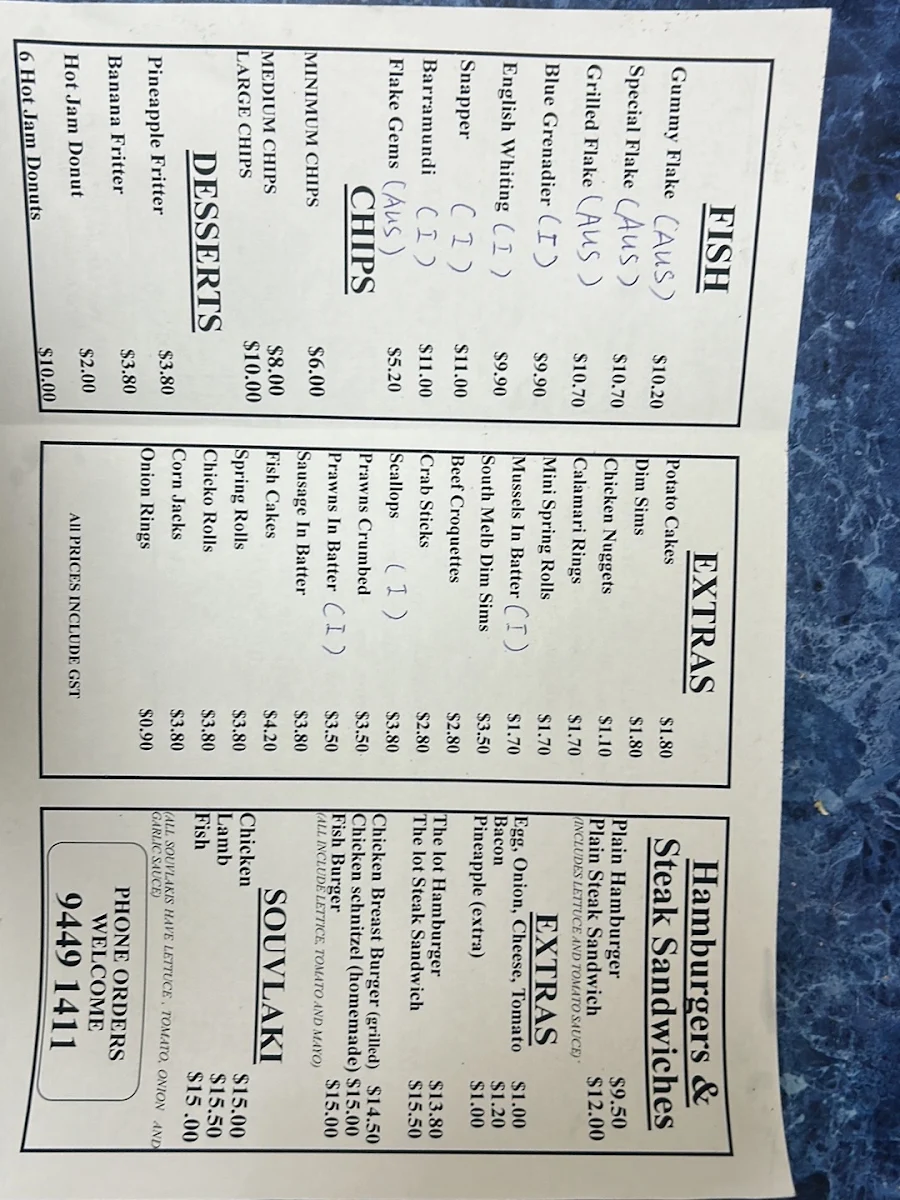 FISH
Gummy Flake (AUS) $10.20
Special Flake (AUS) $10.70
Grilled Flake (AUS) $10.70
Blue Grenadier (I) $9.90
English Whiting (I) $9.90
Snapper (I) $11.00
Barramundi (I) $11.00
Flake Gems (AUS) $5.20
CHIPS
MINIMUM CHIPS $6.00
MEDIUM CHIPS $8.00
LARGE CHIPS $10.00
DESSERTS
Pineapple Fritter $3.80
Banana Fritter $3.80
Hot Jam Donut $2.00
6 Hot Jam Donuts $10.00
EXTRAS
Potato Cakes $1.80
Dim Sims $1.80
Chicken Nuggets $1.10
Calamari Rings $1.70
Mini Spring Rolls $1.70
Mussels In Batter (I) $1.70
South Melb Dim Sims $3.50
Beef Croquettes $2.80
Crab Sticks $2.80
Scallops (I) $3.80
Prawns Crumbed $3.50
Prawns In Batter (I) $3.50
Sausage In Batter $3.80
Fish Cakes $4.20
Spring Rolls $3.80
Chicko Rolls $3.80
Corn Jacks $3.80
Onion Rings $0.90
All PRICES INCLUDE GST
Hamburgers &
Steak Sandwiches
Plain Hamburger $9.50
Plain Steak Sandwich $12.00
(INCLUDES LETTUCE AND TOMATO SAUCE)
EXTRAS
Egg, Onion, Cheese, Tomato $1.00
Bacon $1.20
Pineapple (extra) $1.00
The lot Hamburger $13.80
The lot Steak Sandwich $15.50
Chicken Breast Burger (grilled) $14.50
Chicken schnitzel (homemade) $15.00
Fish Burger $15.00
(ALL INCLUDE LETTICE, TOMATO AND MAYO)
SOUVLAKI
Chicken $15.00
Lamb $15.50
Fish $15 .00
(ALL SOUVLAKIS HAVE LETTUCE , TOMATO, ONION AND
GARLIC SAUCE)
PHONE ORDERS
WELCOME
9449 1411